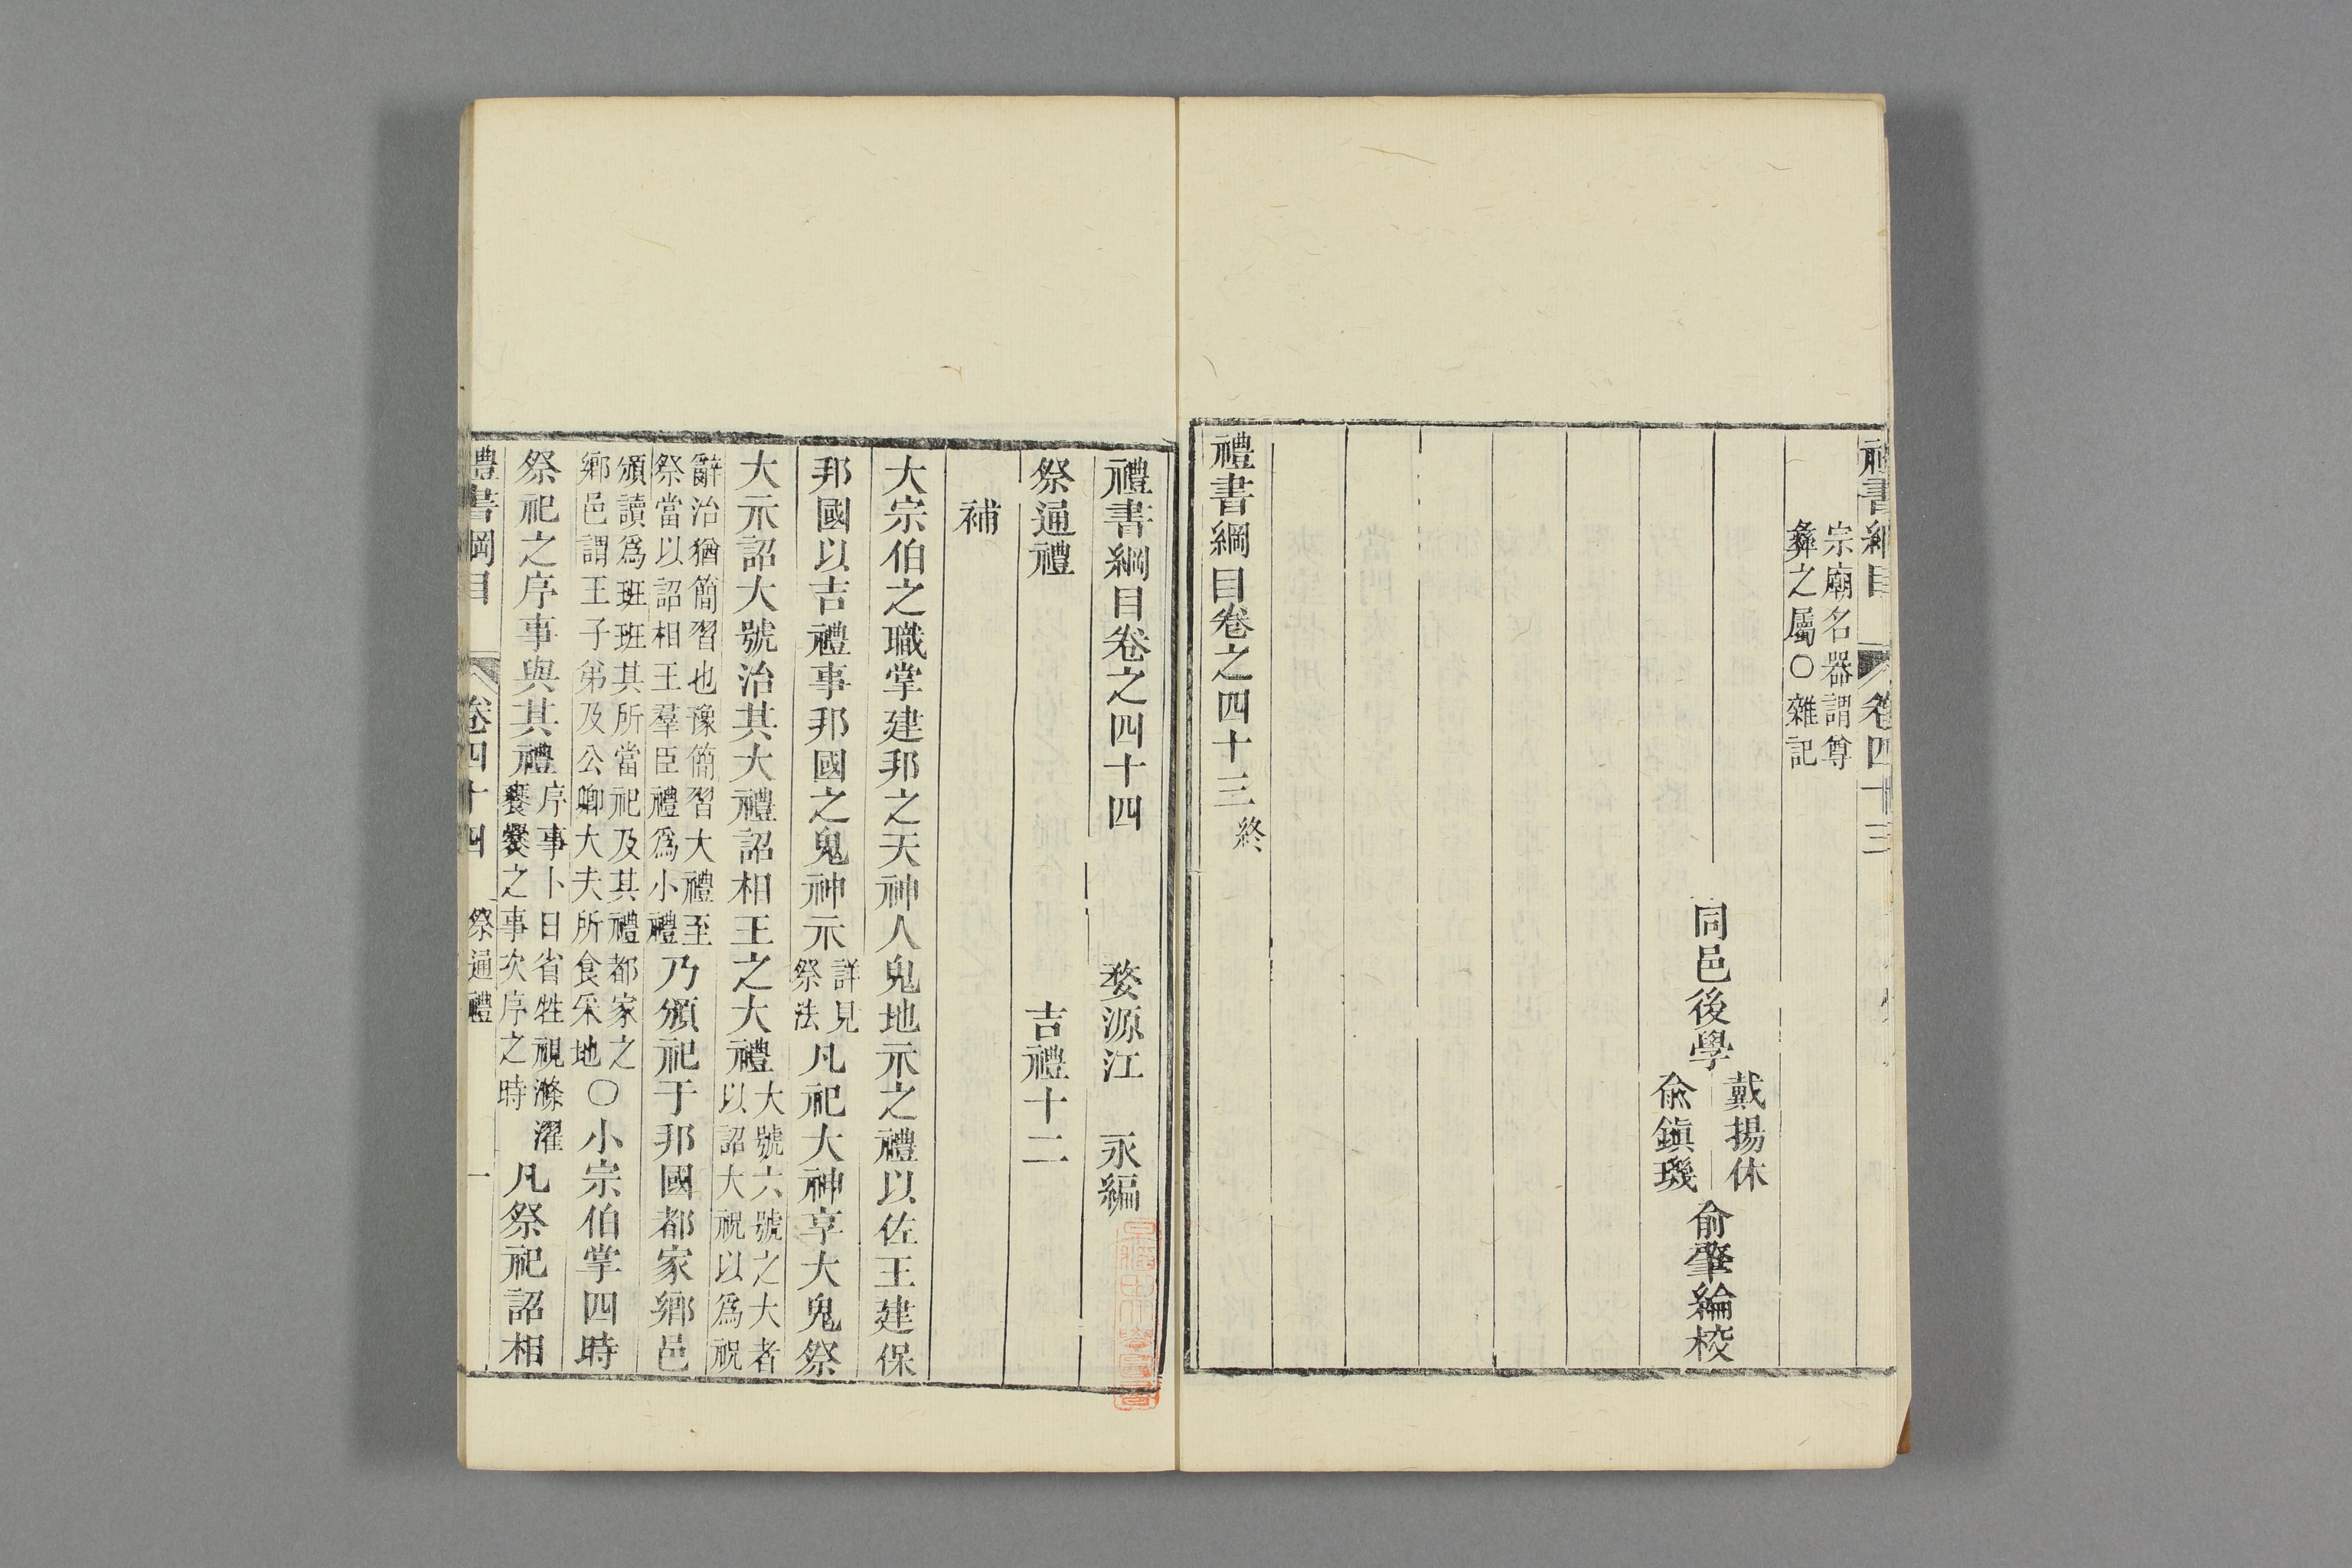 禮書綱目 卷四十三
宗廟名器謂尊
彝之屬○雜記
同邑後學 戴揚休 俞鎮璣 俞肇綸校
禮書綱目卷之四十三終
禮書綱目卷之四十四 婺源江 永編
祭通禮 吉禮十二
補
大宗伯之職掌建邦之天神人鬼地示之禮以佐王建保
邦國以吉禮事邦國之鬼神示詳見祭法凡祀大神享大鬼祭
大示詔大號治其大禮詔相王之大禮大號六號之大者以詔大祝以爲祝
辭治猶簡習也豫簡習大禮至祭當以詔相王羣臣禮爲小禮乃頒祀于邦國都家鄉邑
頒讀爲班班其所當祀及其禮都家之鄉邑謂王子弟及公卿大夫所食采地○小宗伯掌四時
祭祀之序事與其禮序事卜日省牲視滌濯饔爨之事次序之時凡祭祀詔相
禮書綱目 卷四十四 祭通禮 一